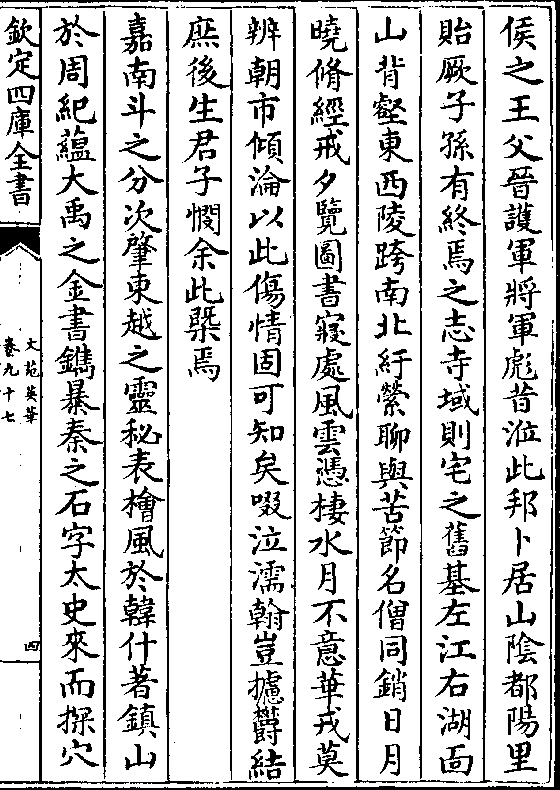 侯之王父晉護軍將軍彪昔涖此邦卜居山陰都陽里
貽厥子孫有終焉之志寺域則宅之舊基左江右湖面
山背壑東西陵跨南北紆縈聊與苦節名僧同銷日月
曉脩經戒夕覽圖書寢處風雲憑棲水月不意華戎莫
辨朝市傾淪以此傷情固可知矣啜泣濡翰豈攄欝結
庶後生君子憫余此槩焉
嘉南斗之分次肇東越之靈秘表檜風於韓什著鎮山
於周紀蘊大禹之金書鐫暴秦之石字太史來而探穴
欽定四庫全書
文苑英華
卷九十七
四